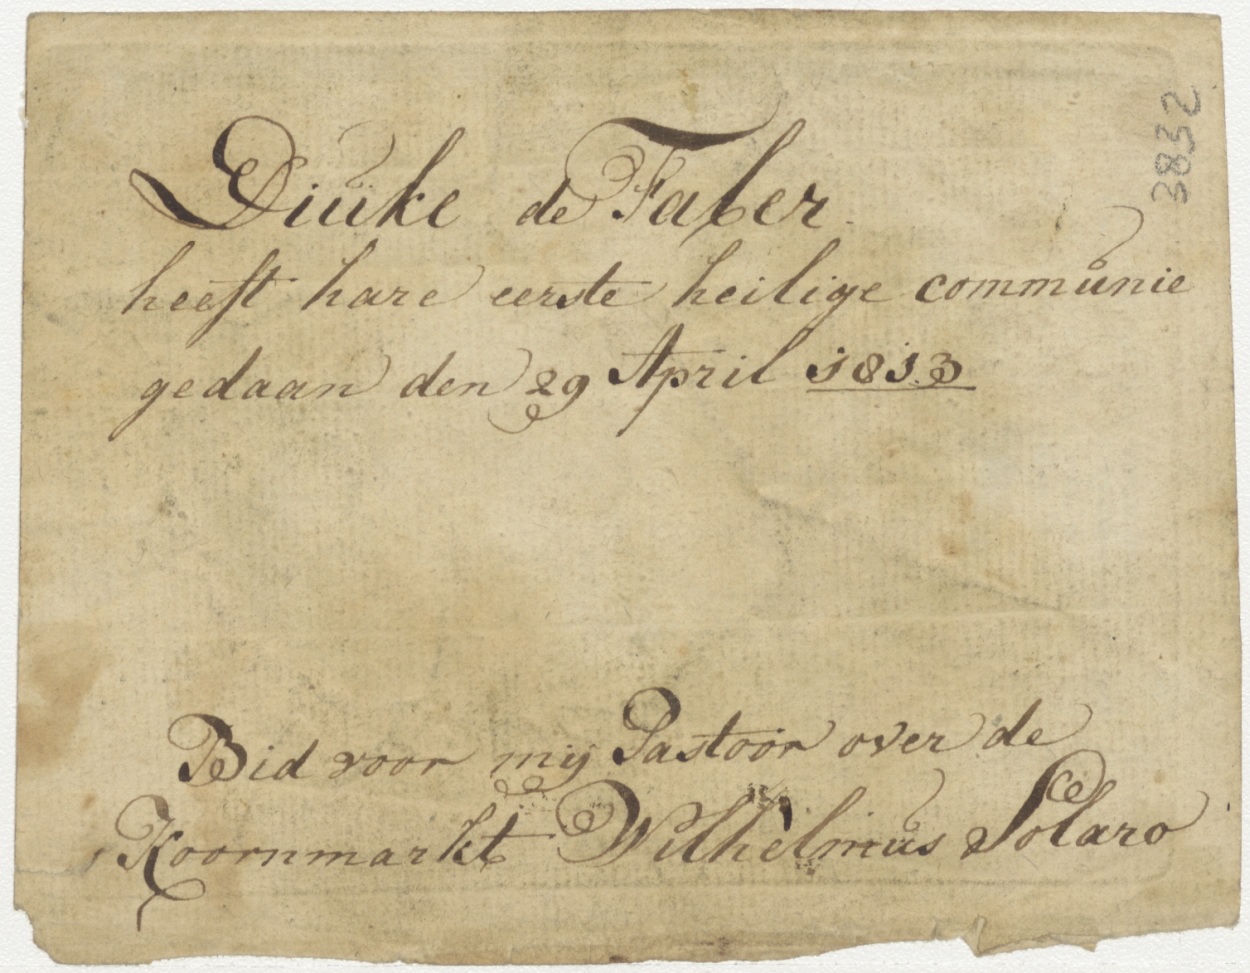 Diuke de Faber
heeft hare eerste heilige communie
gedaan den 29 April 1813
Bid voor mij Pastoor over de
Koornmarkt Wilhelmus Solaro
3852